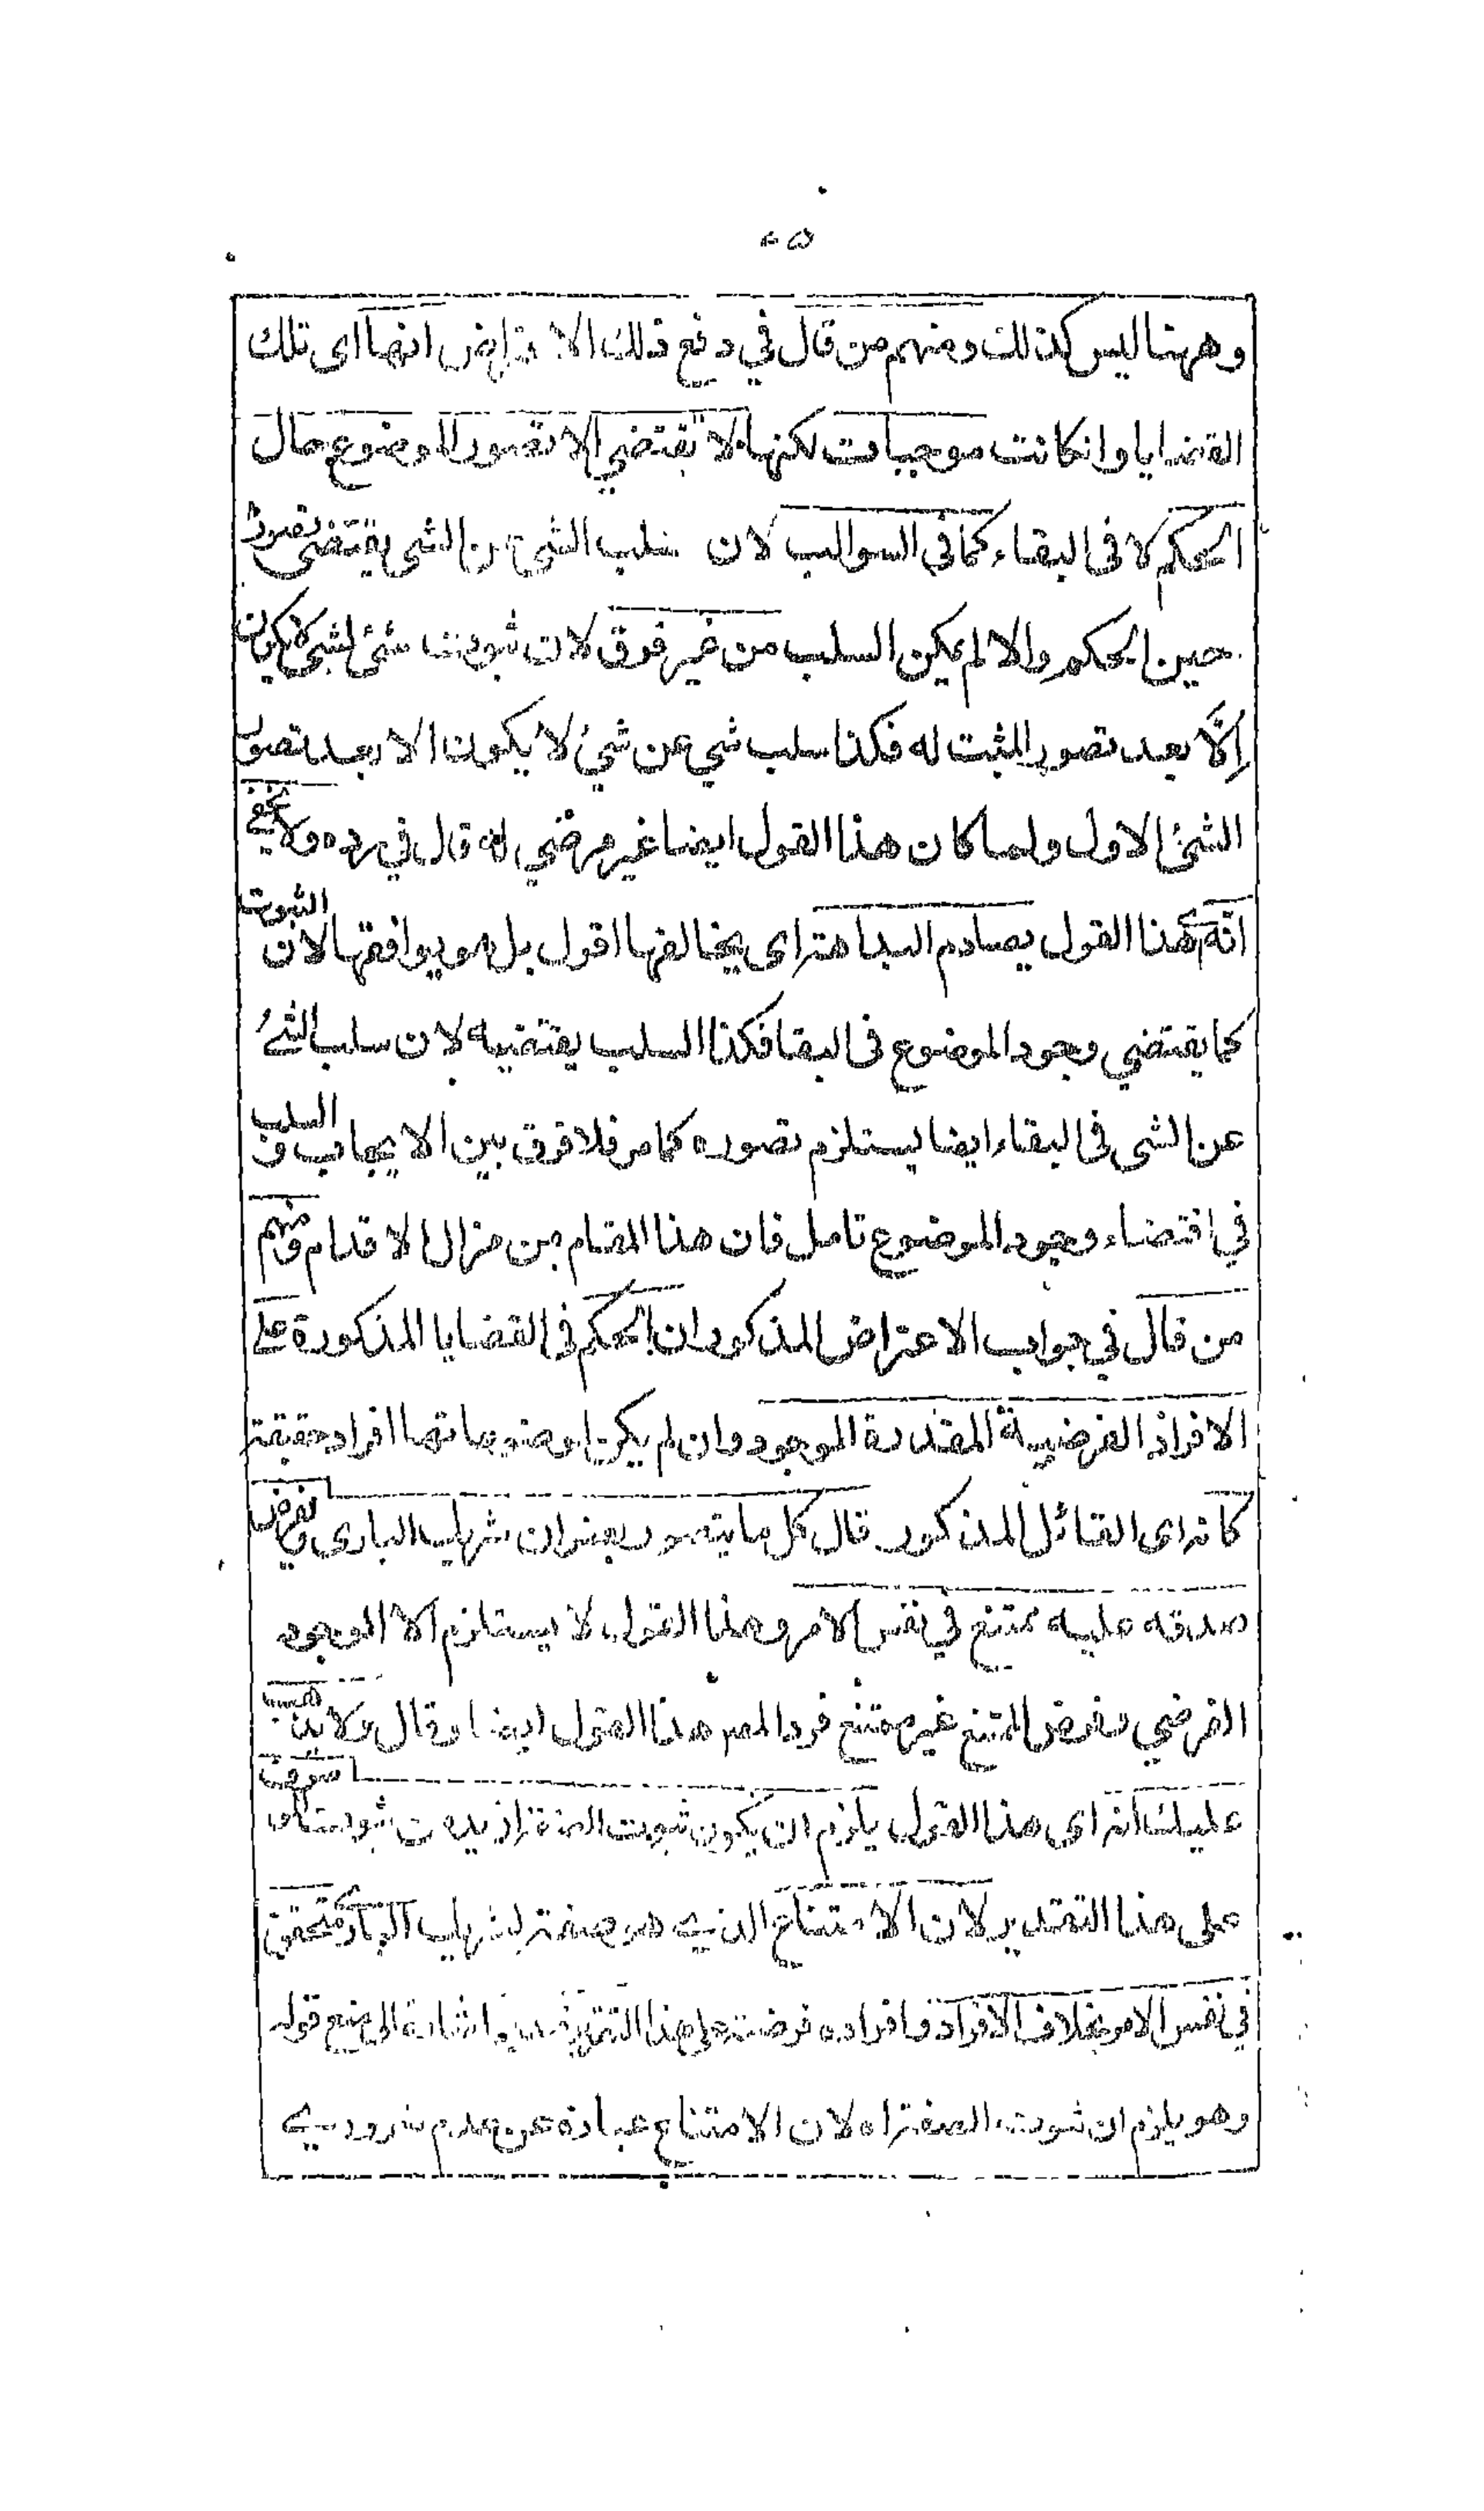 وههنا ليس كذلك ومنهم من قال في دفع ذلك الاعتراض انها اى تلك
القضايا وانكانت موجبات لكنها لا تقتضي الا تصور الموضوع حال
الحكم لا فى البقاء كما فى السوالب لان سلب الشئ عن الشى يقتضى تصوره
حين الحكم والا لم يمكن السلب من غير فرق لان ثبوت شئ لشئ لا يكون
اِلَّا بعد تصور المثبت له فكذا سلب شي عن شئ لا يكون الا بعد تصور
الشئ الاول ولما كان هذا القول ايضا غير مرضي له قال في رده ولا يخفى
انه اى هذا القول يصادم البداهة اى يخالفها اقول بل هو يوافقها لان الثبوت
كما يقتضي وجود الموضوع فى البقا فكذا السلب يقتضيه لان سلب الشئ
عن الشى فى البقاء ايضا يستلزم تصوره كما مر فلا فرق بين الايجاب و السلب
في اقتضاء وجود الموضوع تامل فان هذا المقام من مزال الاقدام ومنهم
من قال في جواب الاعتراض المذكور ان الحكم فى القضايا المذكورة على
الافراد الفرضية المقدرة الموجود وان لم يكن لموضوعاتها افراد حقيقة
كانه اى القائل المذكور قال كل ما يتصور بعنوان شريك البارى ويفرض
صدقه عليه ممتنع في نفس الامر وهذا القول لا يستلزم الا الوجود
الفرضي وفرض الممتنع غير ممتنع فرد المص هذا القول ايضا وقال ولا يذهب
عليك انه اى هذا القول يلزم ان يكون ثبوت الصفة ازيد من ثبوت الموصوف
على هذا التقدير لان الامتناع الذى هو صفة لشريك البارى متحقق
في نفس الامر بخلاف الافراد وافراده فرضت على هذا التقدير فيه اشارة الى منع قوله
وهو يلزم ان ثبوت الصفة اه لان الامتناع عبارة عن عدم ضرورى